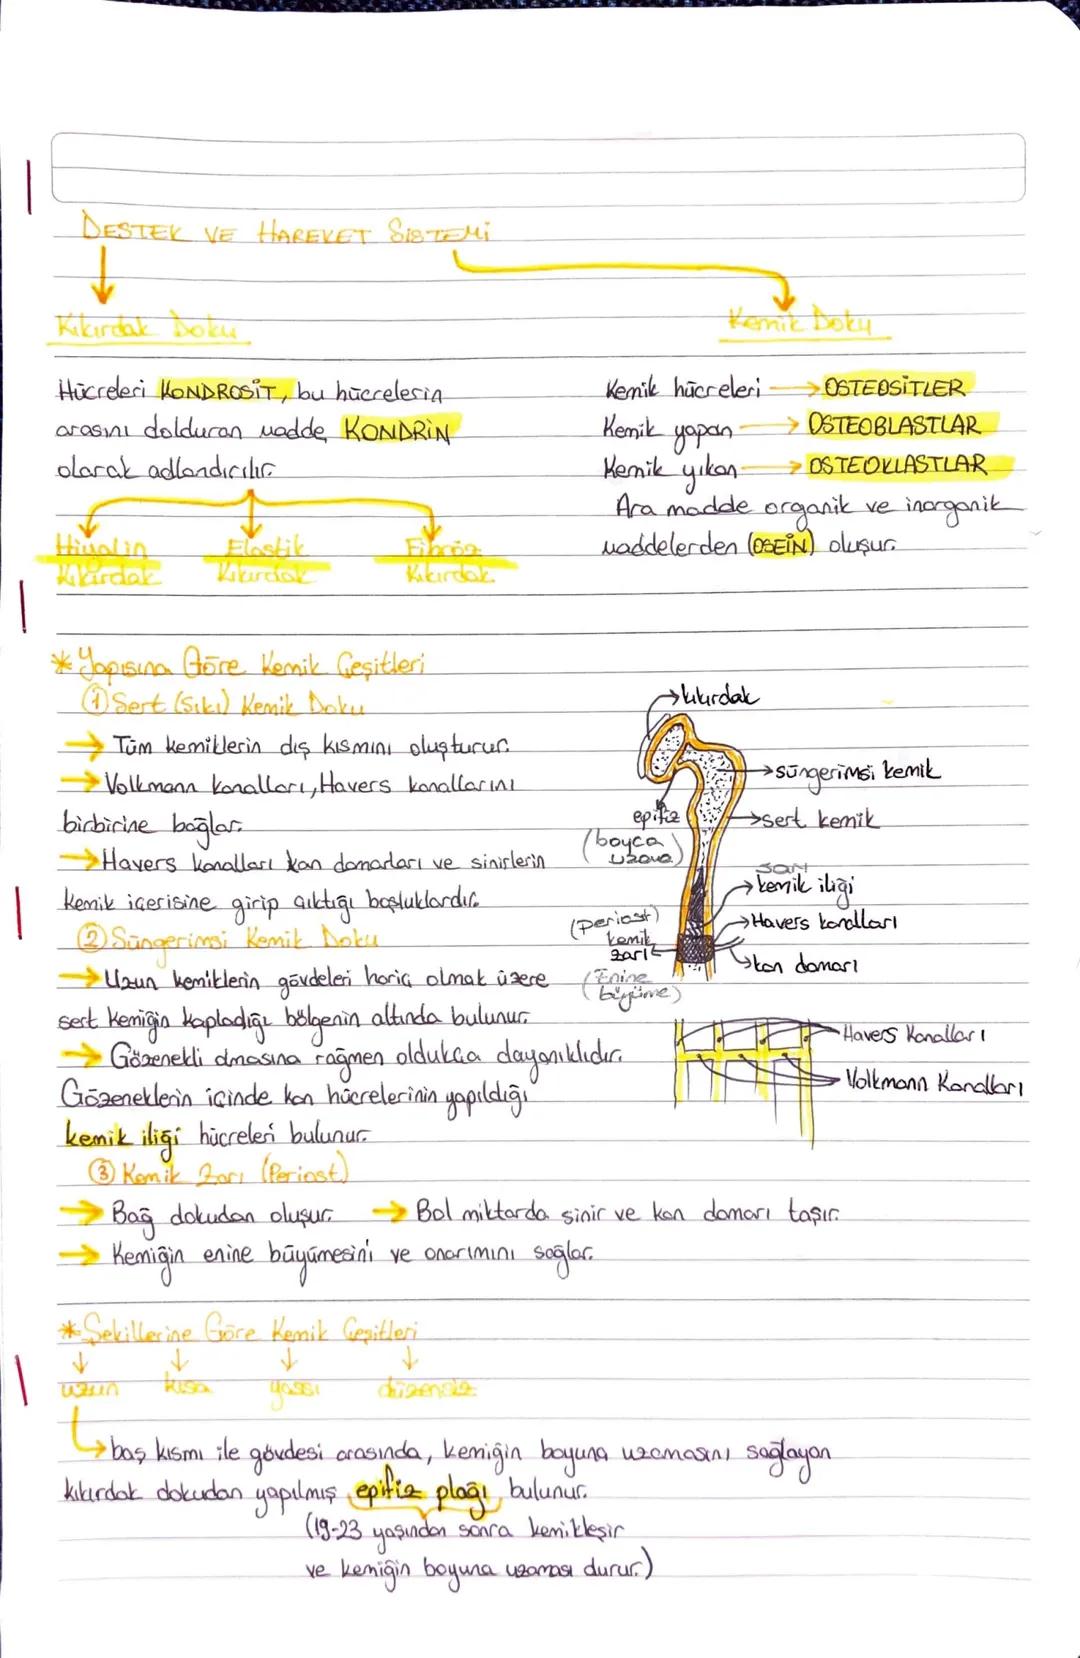 DESTEK VE HAREKET SİSTEMİ
Kıkırdak Doku
Hücreleri KONDROSİT, bu hücrelerin
arasını dolduran madde KONDRİN
olarak adlandırılır.
Hiyalin Kıkırdak
Elastik Kıkırdak
Fibröz Kıkırdak
Kemik Doku
Kemik hücreleri → OSTEOSİTLER
Kemik yapan → OSTEOBLASTLAR
Kemik yıkan → OSTEOKLASTLAR
Ara madde organik ve inorganik
maddelerden (OSEİN) oluşur.
* Yapısına Göre Kemik Çeşitleri
① Sert (Sıkı) Kemik Doku
→ Tüm kemiklerin dış kısmını oluşturur.
→ Volkmann kanalları, Havers kanallarını
birbirine bağlar.
→ Havers kanalları kan damarları ve sinirlerin
kemik içerisine girip çıktığı boşluklardır.
② Süngerimsi Kemik Doku
→ Uzun kemiklerin gövdeleri hariç olmak üzere
sert kemiğin kapladığı bölgenin altında bulunur.
→ Gözenekli olmasına rağmen oldukça dayanıklıdır.
Gözeneklerin içinde kan hücrelerinin yapıldığı
kemik iliği hücreleri bulunur.
→ kıkırdak
→ süngerimsi kemik
epifiz
(boyca
uzama)
→ sert kemik
sarı
→ kemik iliği
(Periost)
kemik
zarı
→ Havers kanalları
→ kan damarı
(Enine
büyüme)
Havers Kanalları
Volkmann Kanalları
③ Kemik Zarı (Periost)
→ Bağ dokudan oluşur. → Bol miktarda sinir ve kan damarı taşır.
→ Kemiğin enine büyümesini ve onarımını sağlar.
* Şekillerine Göre Kemik Çeşitleri
uzun kısa yassı düzensiz
→ baş kısmı ile gövdesi arasında, kemiğin boyuna uzamasını sağlayan
kıkırdak dokudan yapılmış epifiz plağı bulunur.
(19-23 yaşından sonra kemikleşir
ve kemiğin boyuna uzaması durur.)